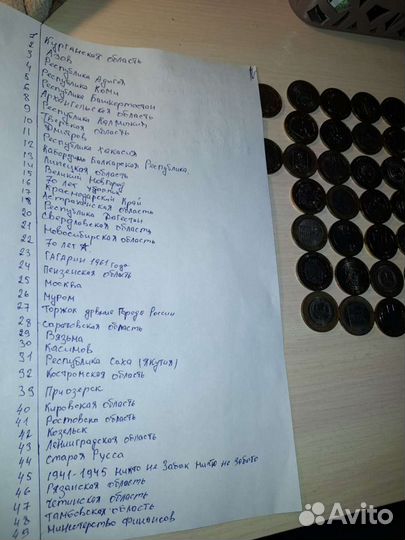 1
2 Курганская область
3 Азов
4 Республика Адыгея
5 Республика Коми
6 Республика Башкортостан
8 Архангельская область
9 Республика Калмыкия
10 Тверская область
11 Дмитров
12 Республика Хакасия
13 Кабардино Балкарская Республика
14 Липецкая область
15 Великий Новгород
16 70 лет
17 Краснодарский край
18 Астраханская область
20 Республика Дагестан
21 Свердловская область
22 Новосибирская область
70 лет
23 Гагарин 1961 года
24 Пензенская область
25 Москва
26 Муром
27 Торжок древние города России
28 Саратовская область
29 Вязьма
30 Касимов
31 Республика Саха (Якутия)
32 Костромская область
39 Приозерск
40 Кировская область
41 Ростовско область
42 Козельск
43 Ленинградская область
44 Старая Русса
45 1941-1945 Никто не забыт ничто не забыто
46 Рязанская область
47 Четинская область
48 Тамбовская область
49 Министерство Финансов
Avito